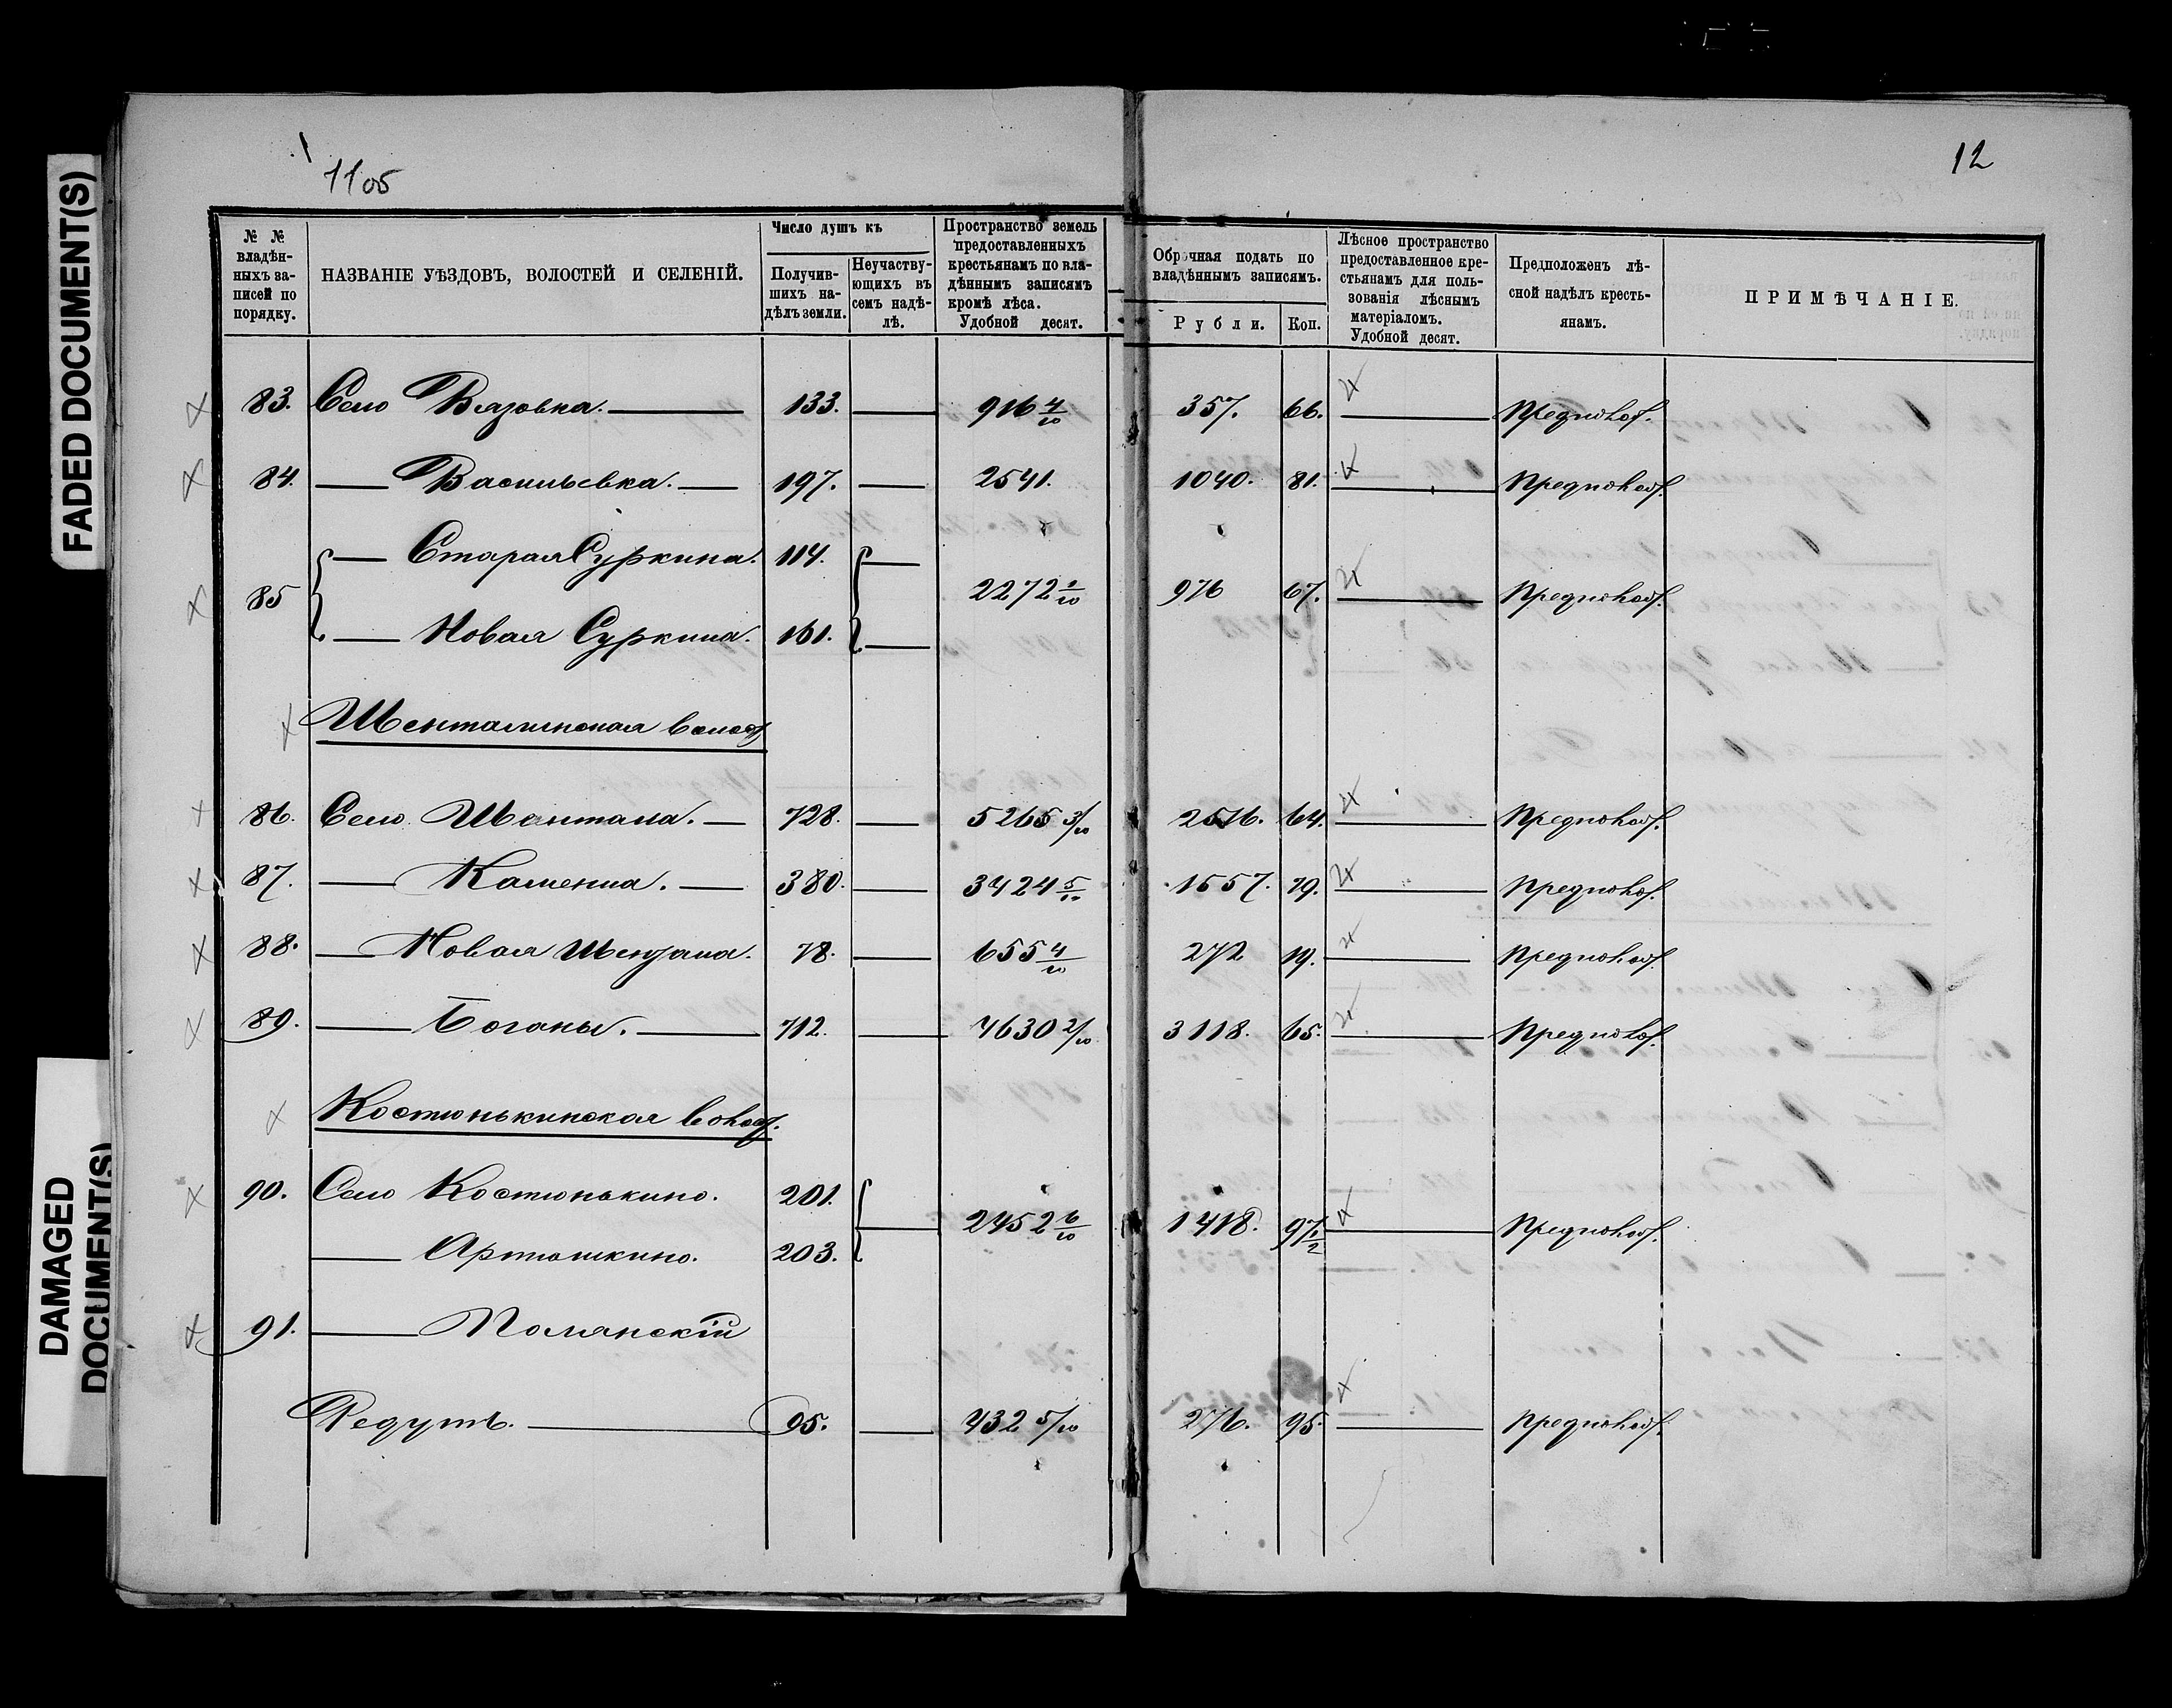 FADED DOCUMENT(S)
DAMAGED DOCUMENT(S)
11об
12
№ № владѣнныхъ записей по порядку.
НАЗВАНІЕ УѢЗДОВЪ, ВОЛОСТЕЙ И СЕЛЕНІЙ.
Число душъ къ
Получившихъ надѣлъ земли.
Неучаствующихъ въ семъ надѣлѣ.
Пространство земель предоставленныхъ крестьянамъ по владѣннымъ записямъ кромѣ лѣса. Удобной десят.
Оброчная подать по владѣннымъ записямъ.
Рубли. Коп.
Лѣсное пространство предоставленное крестьянамъ для пользованія лѣснымъ матеріаломъ. Удобной десят.
Предположенъ лѣсной надѣлъ крестьянамъ.
ПРИМѢЧАНІЕ.
83. Село Вязовка. 133. 916 4/10 357. 66. Предполоѳ.
84. Васильевка. 197. 2541. 1040. 81. Предполоѳ.
Старая Суркина. 114.
85 2272 1/10 976 67. Предполоѳ.
Новая Суркина. 161.
Шенталинская волост
86. Село Шентала. 728. 5265 3/10 2576. 64. Предполоѳ.
87. Каменка. 380. 3424 5/10 1557. 79. Предполоѳ.
88. Новая Шентала. 78. 655 4/10 272 19. Предполоѳ.
89. Боганы. 712. 4630 2/10 3118. 65. Предполоѳ.
Костюнькинская волост.
90. Село Костюнькино. 201.
2452 6/10 1418. 97 1/2 Предполоѳ.
Артюшкино. 203.
91. Полянскій
Редутъ. 95. 432 5/10 276. 95. Предполоѳ.